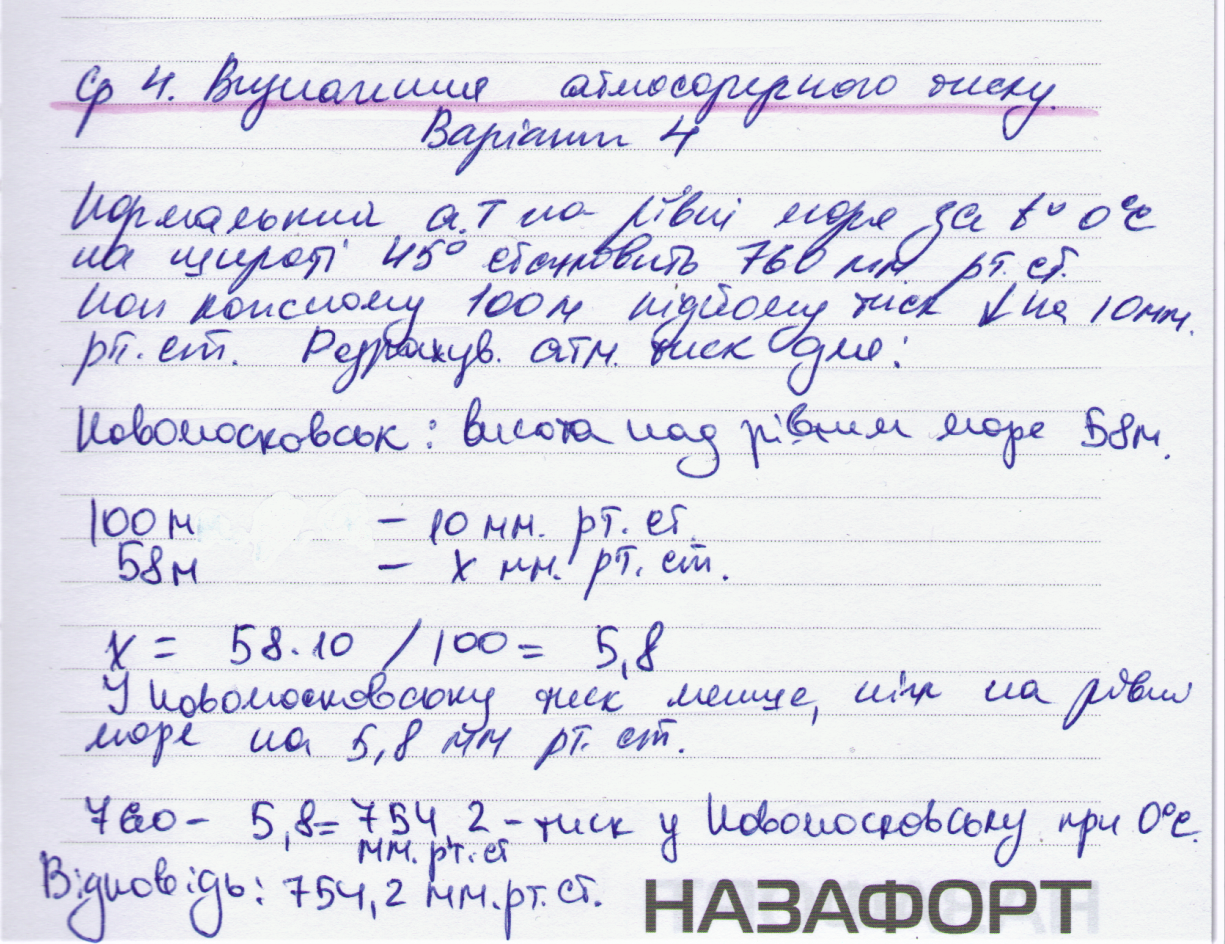 Ср 4. Визначення атмосферного тиску.
Варіант 4
Нормальний а.т на рівні моря за t° 0°C
на широті 45° становить 760 мм рт.ст.
При кожному 100м підйому тиск ↓ на 10 мм.
рт. ст. Розрахув. атм. тиск для:
Новомосковськ: висота над рівним море 58м.
100 м – 10 мм. рт. ст.
58м – x мм. рт. ст.
x = 58·10 / 100 = 5,8
У Новомосковську тиск менше, ніж на рівні
море на 5,8 мм рт. ст.
760 – 5,8 = 754,2 – тиск у Новомосковську при 0°C.
мм. рт. ст
Відповідь: 754,2 мм.рт.ст.
НАЗАФОРТ